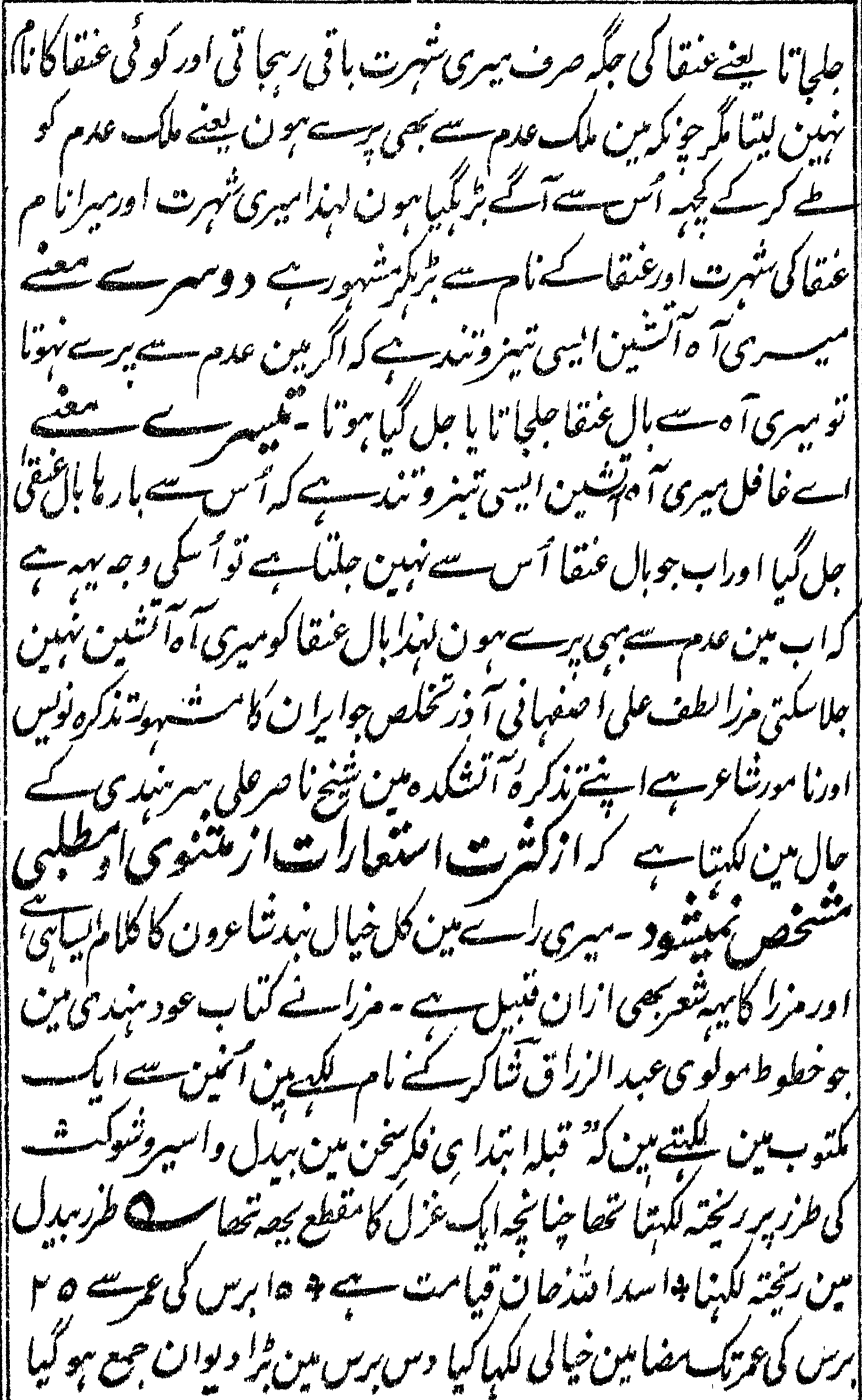 جلجاتا یعنے عنقا کی جگہ صرف میری شہرت باقی رہجاتی اور کوئی عنقا کا نام
نہین لیتا مگر چونکہ مین ملک عدم سے بھی پرے ہون یعنے ملک عدم کو
طے کرکے کچہہ اُس سے آگے بڑہگیا ہون لہذا میری شہرت اور میرا نام
عنقا کی شہرت اور عنقا کے نام سے بڑہکر مشہور ہے دوسرے معنے
میری آہ آتشین ایسی تیز و تند ہے کہ اگر مین عدم سے پرے نہوتا
تو میری آہ سے بال عنقا جلجاتا یا جل گیا ہوتا ۔ تیسرے معنے
اے غافل میری آہ آتشین ایسی تیز و تند ہے کہ اُس سے بارہا بال عنقا
جل گیا اور اب جو بال عنقا اُس سے نہین جلتا ہے تو اُسکی وجہ یہہ ہے
کہ اب مین عدم سے بہی پرے ہون لہذا بال عنقا کو میری آہ آتشین نہین
جلا سکتی مرزا لطف علی اصفہانی آذر تخلص جو ایران کا مشہور تذکرہ نویس
اور نامور شاعر ہے اپنے تذکرۂ آتشکدہ مین شیخ ناصر علی سرہندی کے
حال مین لکہتا ہے کہ از کثرت استعارات از مثنوی او مطلبی
مشخص نمیشود ۔ میری راے مین کل خیال بند شاعرون کا کلام ایسا ہی ہے
اور مرزا کا یہہ شعر بھی ازان قبیل ہے ۔ مرزا نے کتاب عود ہندی مین
جو خطوط مولوی عبد الرزاق شاکر کے نام لکہے ہین اُنمین سے ایک
مکتوب مین لکہتے ہین کہ” قبلہ ابتداے فکر سخن مین بیدل و اسیر و شوکت
کی طرز پر ریختہ لکہتا تھا چنانچہ ایک غزل کا مقطع یہہ تھا ؎ طرز بیدل
مین ریختہ لکہنا * اسد اللہ خان قیامت ہے * ۱۵ برس کی عمر سے ۲۵
برس کی عمر تک مضامین خیالی لکہا کیا دس برس مین بڑا دیوان جمع ہو گیا